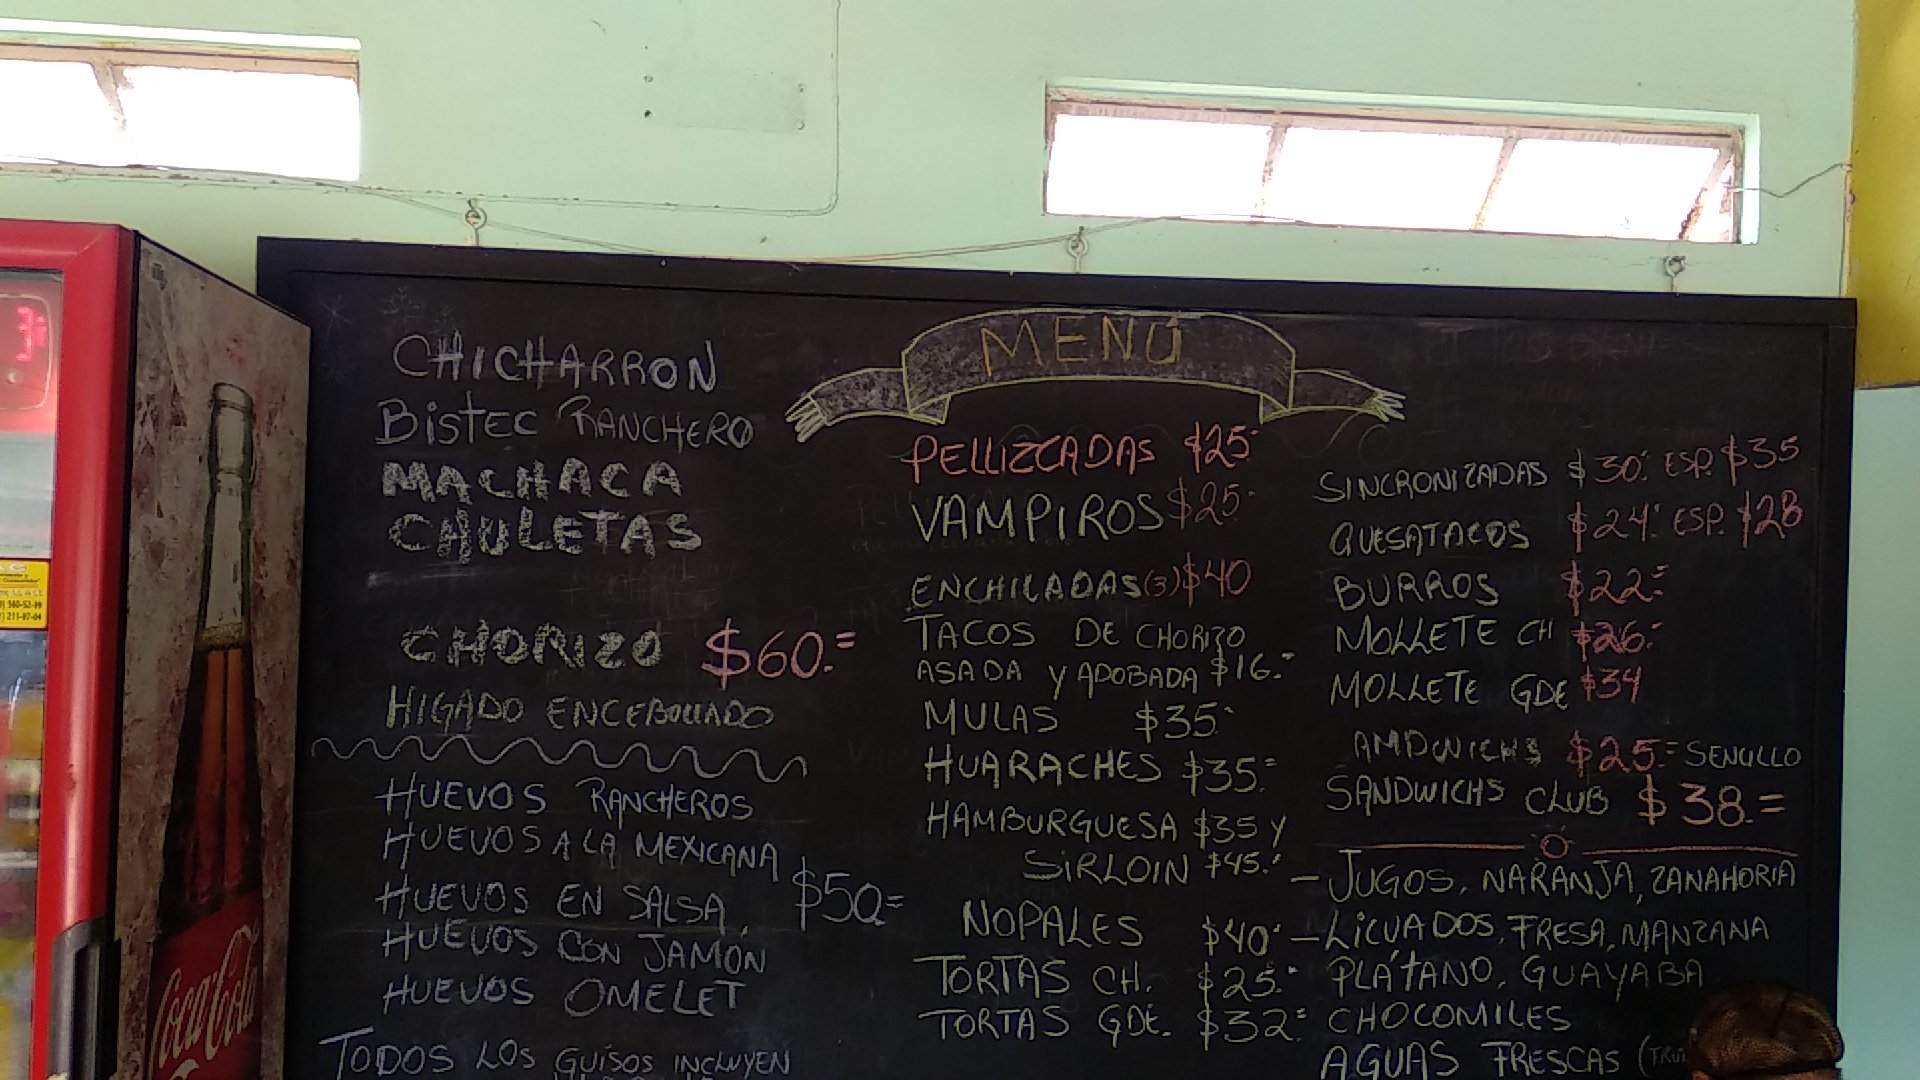 MENÚ
CHICHARRON
BISTEC RANCHERO
MACHACA
CHULETAS
CHORIZO $60.=
HIGADO ENCEBOLLADO
HUEVOS RANCHEROS
HUEVOS A LA MEXICANA
HUEVOS EN SALSA $50=
HUEVOS CON JAMÓN
HUEVOS OMELET
TODOS LOS GUISOS INCLUYEN
PELLIZCADAS $25.
VAMPIROS $25.
ENCHILADAS (3) $40
TACOS DE CHORIZO
ASADA Y ADOBADA $16.=
MULAS $35.
HUARACHES $35.=
HAMBURGUESA $35 Y
SIRLOIN $45.
NOPALES $40.
TORTAS CH. $25.
TORTAS GDE. $32.=
SINCRONIZADAS $30. ESP. $35
QUESATACOS $24. ESP. $28
BURROS $22=
MOLLETE CH $26.
MOLLETE GDE $34
AMDWICHS $25.= SENCILLO
SANDWICHS CLUB $38.=
- JUGOS, NARANJA, ZANAHORIA
- LICUADOS, FRESA, MANZANA
PLÁTANO, GUAYABA
CHOCOMILES
AGUAS FRESCAS
Coca-Cola